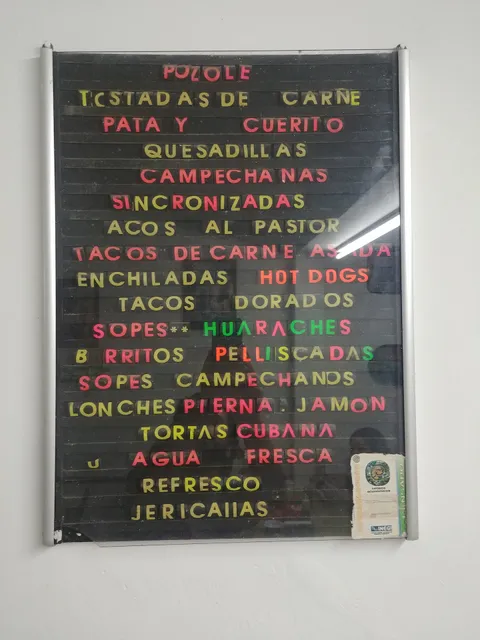 POZOLE
TCSTADAS DE CARNE
PATA Y CUERITO
QUESADILLAS
CAMPECHANAS
SINCRONIZADAS
ACOS AL PASTOR
TACOS DE CARNE ASADA
ENCHILADAS HOT DOGS
TACOS DORADOS
SOPES** HUARACHES
B RRITOS PELLISCADAS
SOPES CAMPECHANOS
LONCHES PIERNA . JAMON
TORTAS CUBANA
J AGUA FRESCA
REFRESCO
JERICAIIAS